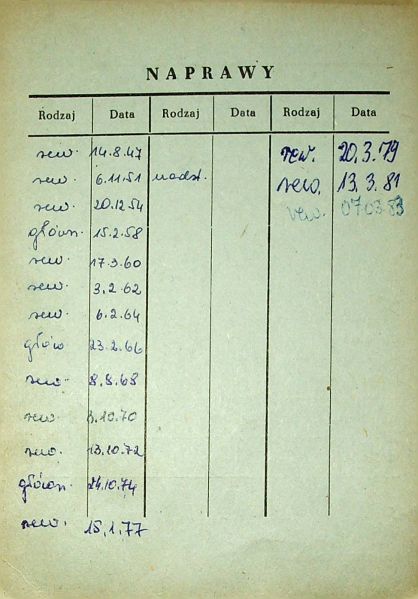 NAPRAWY
Rodzaj Data Rodzaj Data Rodzaj Data
rew. 14.8.47 rew. 20.3.79
rew. 6.11.51 nadzt. rew. 13.3.81
rew. 20.12.54 rew. 07.03.83
główn. 15.2.58
rew. 17.3.60
rew. 3.2.62
rew. 6.2.64
głów. 23.2.66
rew. 8.8.68
rew. 8.10.70
rew. 13.10.72
główn. 24.10.74
rew. 15.1.77